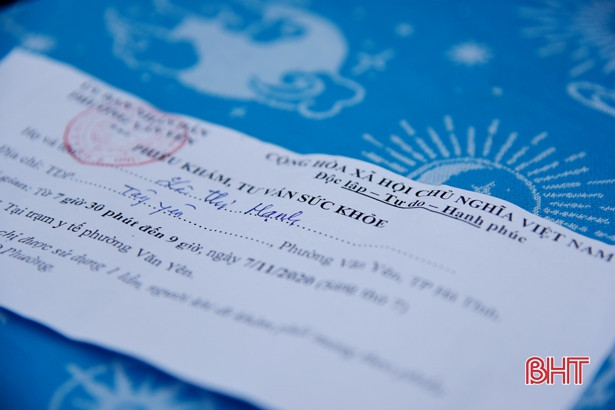 ỦY BAN NHÂN DÂN
PHƯỜNG VĂN YÊN
CỘNG HÒA XÃ HỘI CHỦ NGHĨA VIỆT NAM
Độc lập – Tự do – Hạnh phúc
PHIẾU KHÁM, TƯ VẤN SỨC KHỎE
Họ và Thị Hạnh
Địa chỉ: TDP Tây Yên, Phường Văn Yên, TP Hà Tĩnh.
gian: Từ 7 giờ 30 phút đến 9 giờ, ngày 7/11/2020 (sáng thứ 7)
Tại trạm y tế phường Văn Yên.
chỉ được sử dụng 1 lần, người khi đi khám
Phường.
BHT